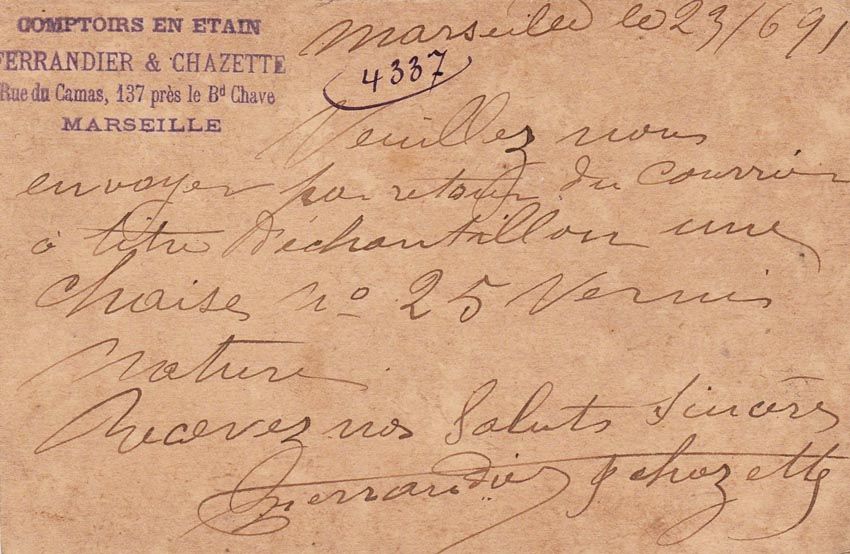 COMPTOIRS EN ETAIN
FERRANDIER & CHAZETTE
Rue du Camas, 137 près le Bd Chave
MARSEILLE
Marseille le 23/6 91
4337
Veuillez nous
envoyer par retour du courrier
à titre d'échantillon une
chaise no 25 Vernis
nature
Recevez nos Saluts Sincères
Ferrandier & chazette